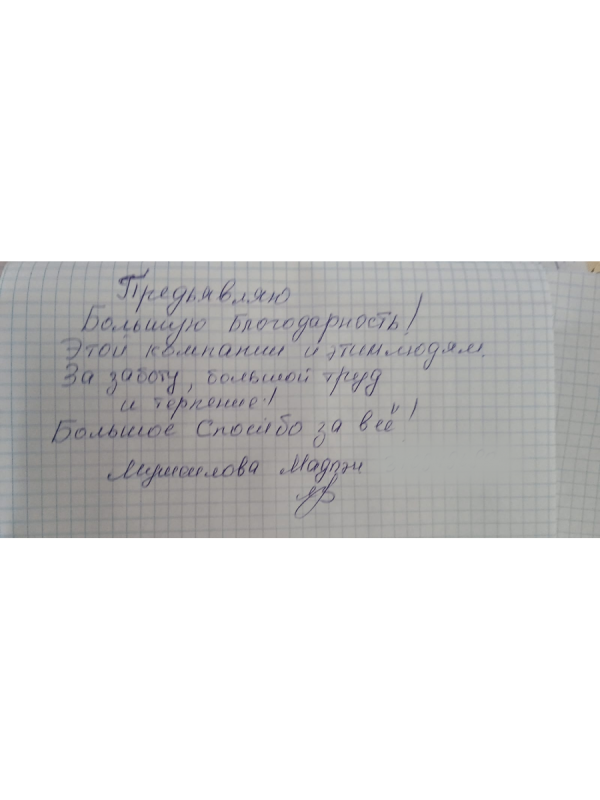 Предьявляю
Большую Благодарность!
Этой компании и этим людям.
За заботу, большой труд
и терпение!
Большое Спосибо за всё!